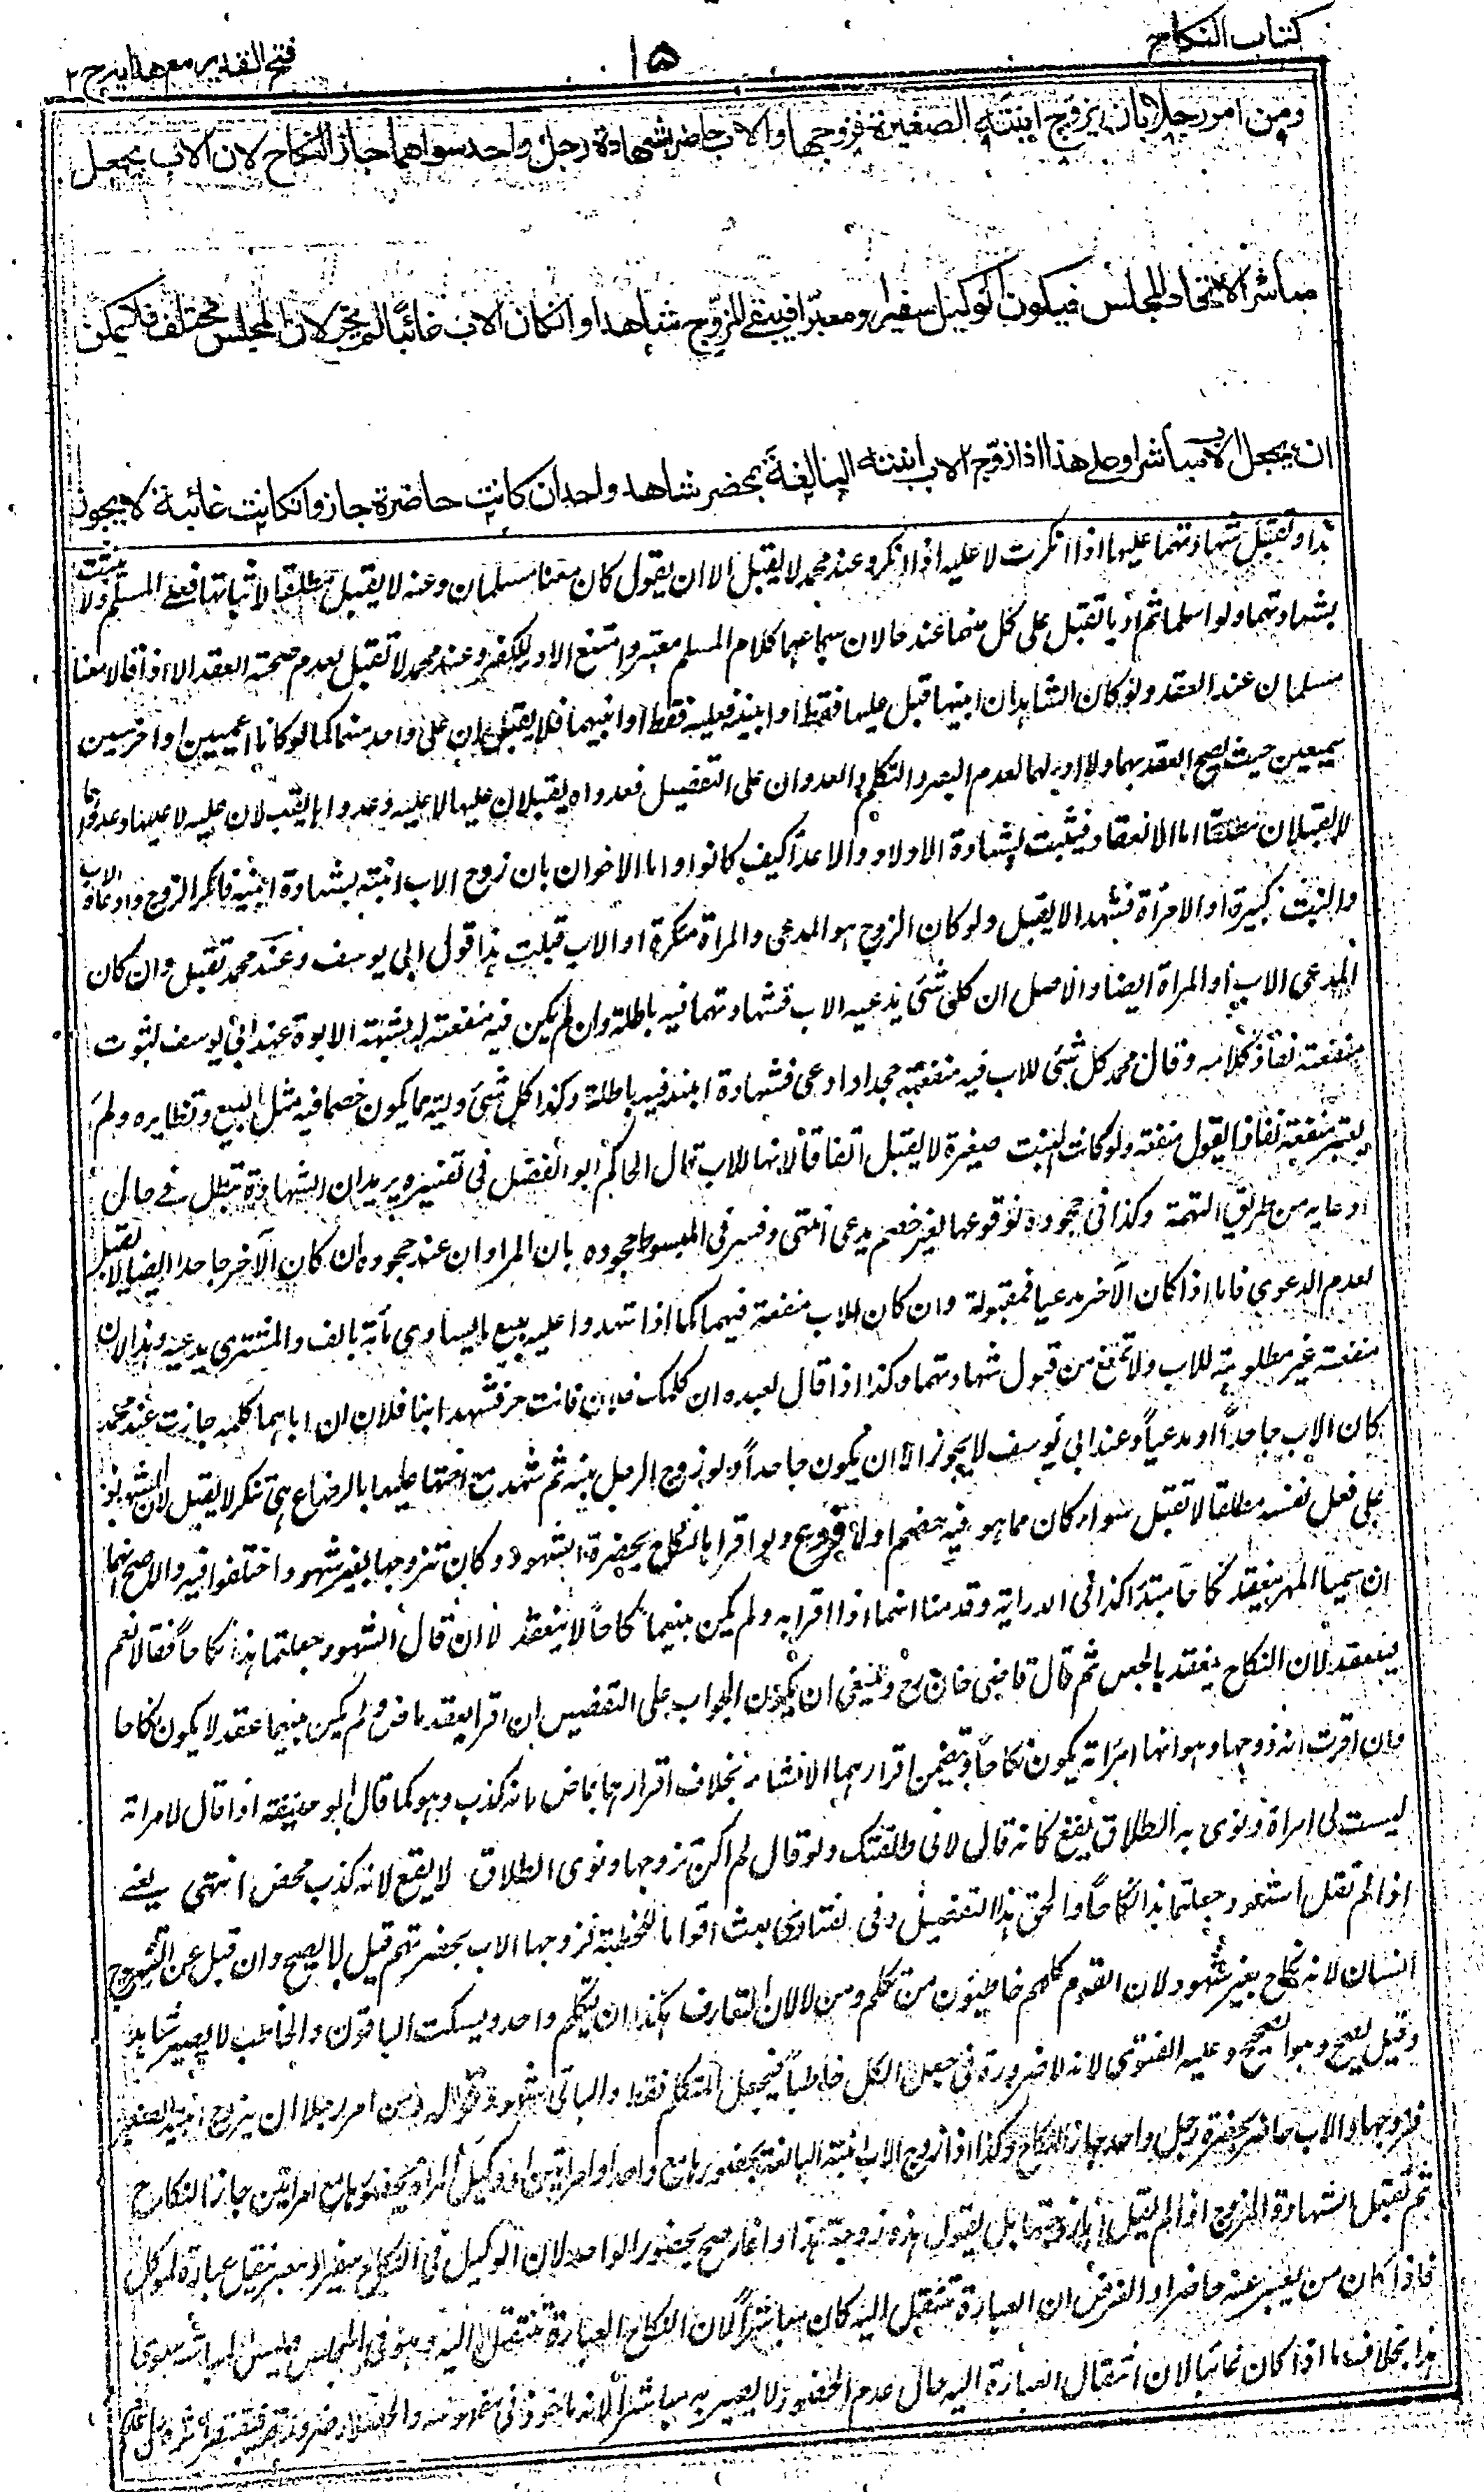 كتاب النكاح
١٥
فتح القدير مع هدايه ج ٢
ومن امر رجلا بان يزوج ابنته الصغيرة فزوجها والاب حاضر بشهادة رجل واحد سواهما جاز النكاح لان الاب يجعل
مباشرا لاتحاد المجلس فيكون الوكيل سفيرا ومعبرا فيبقى المزوج شاهدا وان كان الاب غائبا لم يجز لان المجلس مختلف فلا يمكن
ان يجعل الاب مباشرا وعلى هذا اذا زوج الاب ابنته البالغة بمحضر شاهد واحد ان كانت حاضرة جاز وان كانت غائبة لا يجوز
هذا وتقبل شهادتهما عليها اذا انكرت لا عليه اذا انكر وعند محمد لا يقبل الا ان يقول كان معنا مسلمان وعنه لا يقبل مطلقا لاثباتها فعل المسلم ولا يثبت
بشهادتهما ولو اسلما ثم اديا تقبل على كل منهما عندهما لان سماعهما كلام المسلم معتبر وامتنع الاداء للكفر وعند محمد لا تقبل لعدم صحة العقد الا اذا قالا معنا
مسلمان عند العقد ولو كان الشاهدان ابنيها قبل عليها فقط او ابنيه فعليه فقط او ابنيهما فلا يقبلان على واحد منهما كما لو كانا اعميين او اخرسين
سميعين حيث يصح العقد بهما ولا اداء لهما لعدم البصر والتكلم والعدوان على التفصيل فعدواه يقبلان عليها لا عليه وعدواها يقبلان عليه لا عليها وعدواهما
لا يقبلان مطلقا اما الانعقاد فيثبت بشهادة الاولاد والاعداء كيف كانوا واما الاخوان بان زوج الاب ابنته بشهادة ابنيه فانكر الزوج وادعاه الاب
والبنت كبيرة او الامرأة فشهدا لا يقبل ولو كان الزوج هو المدعى والمرأة منكرة او الاب قبلت هذا قول ابي يوسف وعند محمد تقبل وان كان
المدعى الاب او المرأة ايضا والاصل ان كل شئ يدعيه الاب فشهادتهما فيه باطلة وان لم يكن فيه منفعة له بشبهة الابوة عند ابي يوسف لثبوت
منفعة نفاذ كلامه وقال محمد كل شئ للاب فيه منفعة جحد او ادعى فشهادة ابنه فيه باطلة وكذا كل شئ وليه مما يكون خصما فيه مثل البيع ونظايره ولم
يعتبر منفعة نفاذ القول منفعة ولو كانت البنت صغيرة لا يقبل اتفاقا لانها للاب قال الحاكم ابو الفضل في تفسيره يريد ان الشهادة تبطل في حال
ادعايه من طريق التهمة وكذا في جحوده لوقوعها بغير خصم يدعى انتهى وفسر في المبسوط جحوده بان المراد ان عند جحوده ان كان الآخر جاحدا ايضا لا تقبل
لعدم الدعوى فاما اذا كان الآخر مدعيا فمقبولة وان كان للاب منفعة فيهما كما اذا شهدوا عليه ببيع ما يساوى مائة بالف والمشترى يدعيه وهذا لان
منفعة غير مطلوبة للاب ولا تمنع من قبول شهادتهما وكذا اذا قال لعبده ان كلمك فلان فانت حر فشهد ابنا فلان ان اباهما كلمه جازت عند محمد
كان الاب جاحدا او مدعيا وعند ابي يوسف لا يجوز الا ان يكون جاحدا ولو زوج الرجل بنته ثم شهد مع اختها عليها بالرضاع هي تنكر لا يقبل لان الشهود
على فعل نفسه مطلقا لا تقبل سواء كان مما هو فيه خصم او لا فروع ولو اقرا بالنكاح بحضرة الشهود وكان تزوجها بغير شهود اختلفوا فيه والاصح انهما
ان سميا المهر ينعقد نكاحا مبتدأ كذا في الدراية وقدمنا انهما اذا اقرا به ولم يكن بينهما نكاحا لا ينعقد فان قال الشهود جعلتما هذا نكاحا فقالا نعم
ينعقد لان النكاح ينعقد بالجعل ثم قال قاضى خان رح وينبغى ان يكون الجواب على التفصيل ان اقرا بعقد ماض ولم يكن بينهما عقد لا يكون نكاحا
وان اقرت انه زوجها وهو انها امرأته يكون نكاحا ويتضمن اقرارهما الانشاء بخلاف اقرارهما بماض لانه كذب وهو كما قال ابو حنيفة اذا قال لامراته
ليست لى امراة ونوى به الطلاق يقع كانه قال لانى طلقتك ولو قال لم اكن تزوجها ونوى الطلاق لا يقع لانه كذب محض انتهى يعنى
اذا لم تقل الشهود جعلتما هذا نكاحا والحق هذا التفصيل وفى الفتاوى بعث اقواما للخطبة فزوجها الاب بحضرتهم قيل لا يصح وان قبل عن الزوج
انسان لانه نكاح بغير شهود لان القوم كلهم خاطبون من تكلم ومن لا لان التعارف هكذا ان يتكلم واحد ويسكت الباقون والخاطب لا يصير شاهدا
وقيل يصح وهو الصحيح وعليه الفتوى لانه لا ضرورة فى جعل الكل خاطبا فيجعل المتكلم فقط والباقى شهود قوله ومن امر رجلا ان يزوج ابنته الصغيرة
فزوجها والاب حاضر بحضرة رجل واحد جاز النكاح وكذا اذا زوج الاب ابنته البالغة بحضورها مع واحد او امراتين او وكيل المرأة بحضورها مع امراتين جاز النكاح
ثم تقبل شهادة المزوج اذا لم يقل انا زوجتها بل يقول هذه زوجة هذا وانما صح بحضور الواحد لان الوكيل فى النكاح سفير ومعبر ينقل عبارة الموكل
فاذا كان من يعبر عنه حاضرا والفرض ان العبارة تنتقل اليه كان مباشرا لان النكاح العبارة تنتقل اليه وهو فى المجلس وليس المباشر سوى
هذا بخلاف ما اذا كان غائبا لان انتقال العبارة اليه حال عدم الحضور لا يصير به مباشرا لانه ماخوذ فى مفهومه الحضور